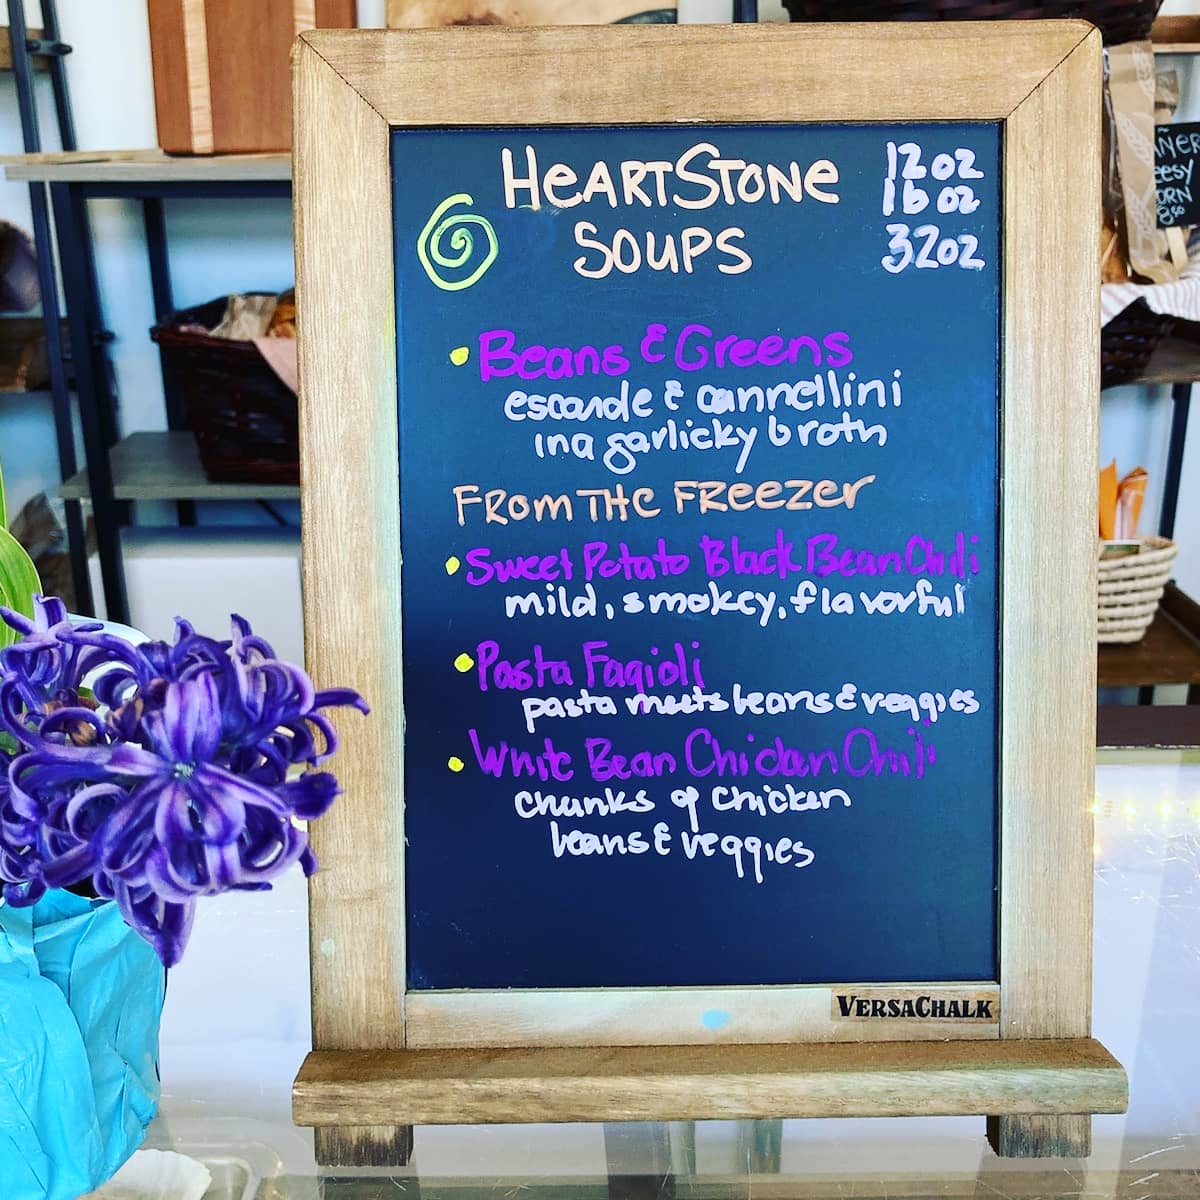 HeARTSTONe
SOUPS
12oz
16oz
32oz
• Beans & Greens
escarole & cannellini
in a garlicky broth
FROM THe FReezeR
• Sweet Potato Black Bean Chili
mild, smokey, flavorful
• Pasta Fagioli
pasta meets beans & veggies
• White Bean Chicken Chili
chunks of chicken
beans & veggies
VERSACHALK